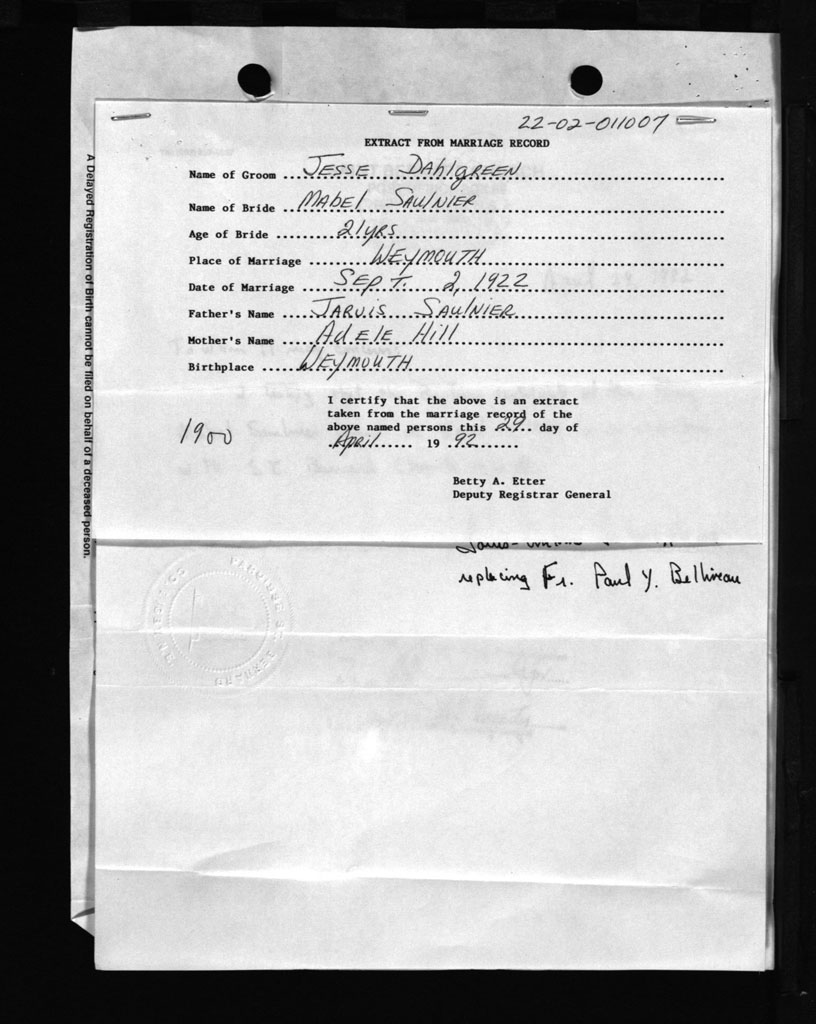 22-02-011007
EXTRACT FROM MARRIAGE RECORD
Name of Groom ... JESSE DAHLGREEN
Name of Bride ... MABEL SAULNIER
Age of Bride ... 21 yrs
Place of Marriage ... WEYMOUTH
Date of Marriage ... SEPT. 2, 1922
Father's Name ... JARVIS SAULNIER
Mother's Name ... AdELE Hill
Birthplace ... WEYMOUTH
I certify that the above is an extract
taken from the marriage record of the
above named persons this 29 day of
April 19 92
1900
Betty A. Etter
Deputy Registrar General
A Delayed Registration of Birth cannot be filed on behalf of a deceased person.
replacing Fr. Paul Y. Belliveau